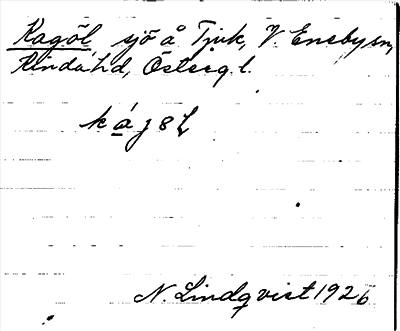 Kagöl, sjö å Tjuk, V. Eneby sn,
Kinda hd, Östergl.
N. Lindqvist 1926